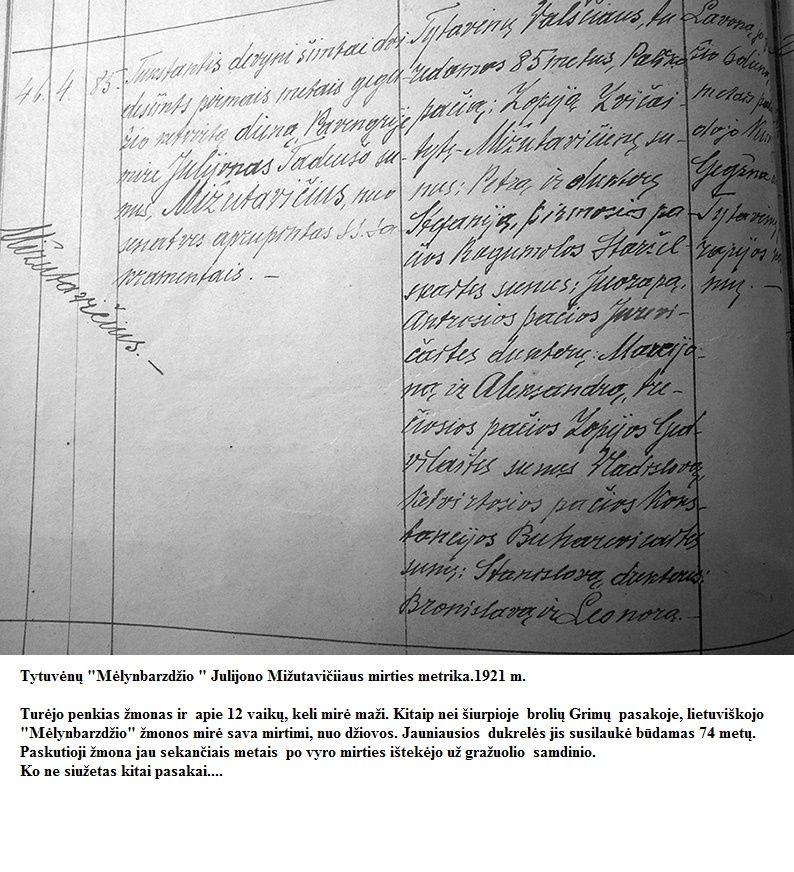 46. 4. 85.
Tūkstantis devyni šimtai dvi
dešimts pirmais metais gegu
žio ketvirtą dieną Pavengrije
mirė Julijonas Tadeušo su-
nus, Mižutavičius, nuo
senatvės aprupintas šš. sa
kramentais. —
Mižutavičius. —
Tytavėnų Valsčiaus, tu
rėdamas 85 metus, Paliko
pačią: Zopiją Zvičai-
tytę-Mižutavičienę su-
nus: Petrą ir dukterę
Stefaniją, pirmosios pa-
čios Rogumolos Staržel-
skaites sunus: Juozapą,
Antrosios pačios
čaites dukterų: Marcijo-
ną ir Aleksandrą, tre-
čiosios pačios Zopijos Ged-
vilaites sunus Vladislovą,
Ketvirtosios pačios Kons-
tancijos Buharevičaites
sunų: Stanislovą, dukteris:
Bronislavą ir Leonora. —
Lavoną
čio 6 dieną,
metais
dojo Kun
Gegžna
Tytavėnų
rapijos
nių. —
Tytuvėnų "Mėlynbarzdžio " Julijono Mižutavičiiaus mirties metrika.1921 m.
Turėjo penkias žmonas ir apie 12 vaikų, keli mirė maži. Kitaip nei šiurpioje brolių Grimų pasakoje, lietuviškojo
"Mėlynbarzdžio" žmonos mirė sava mirtimi, nuo džiovos. Jauniausios dukrelės jis susilaukė būdamas 74 metų.
Paskutioji žmona jau sekančiais metais po vyro mirties ištekėjo už gražuolio samdinio.
Ko ne siužetas kitai pasakai....